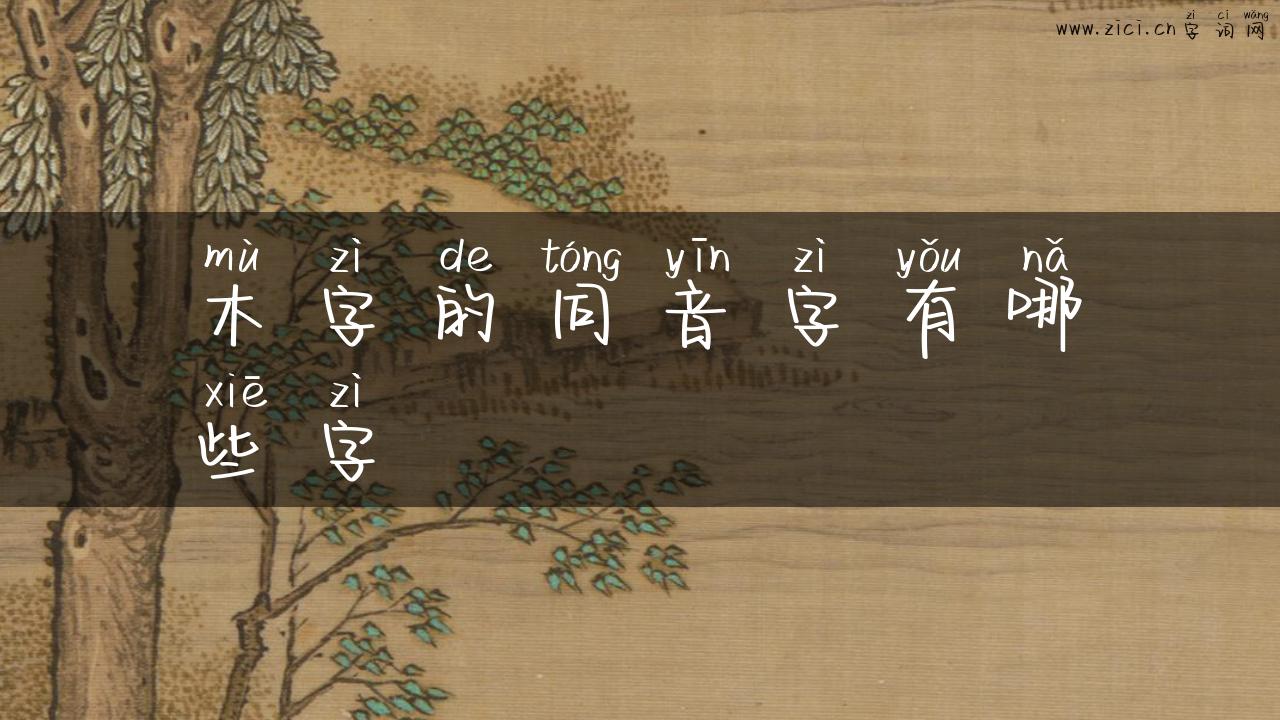 zì cí wǎng
www.zici.cn 字词网
mù zì de tóng yīn zì yǒu nǎ
木字的同音字有哪
xiē zì
些字